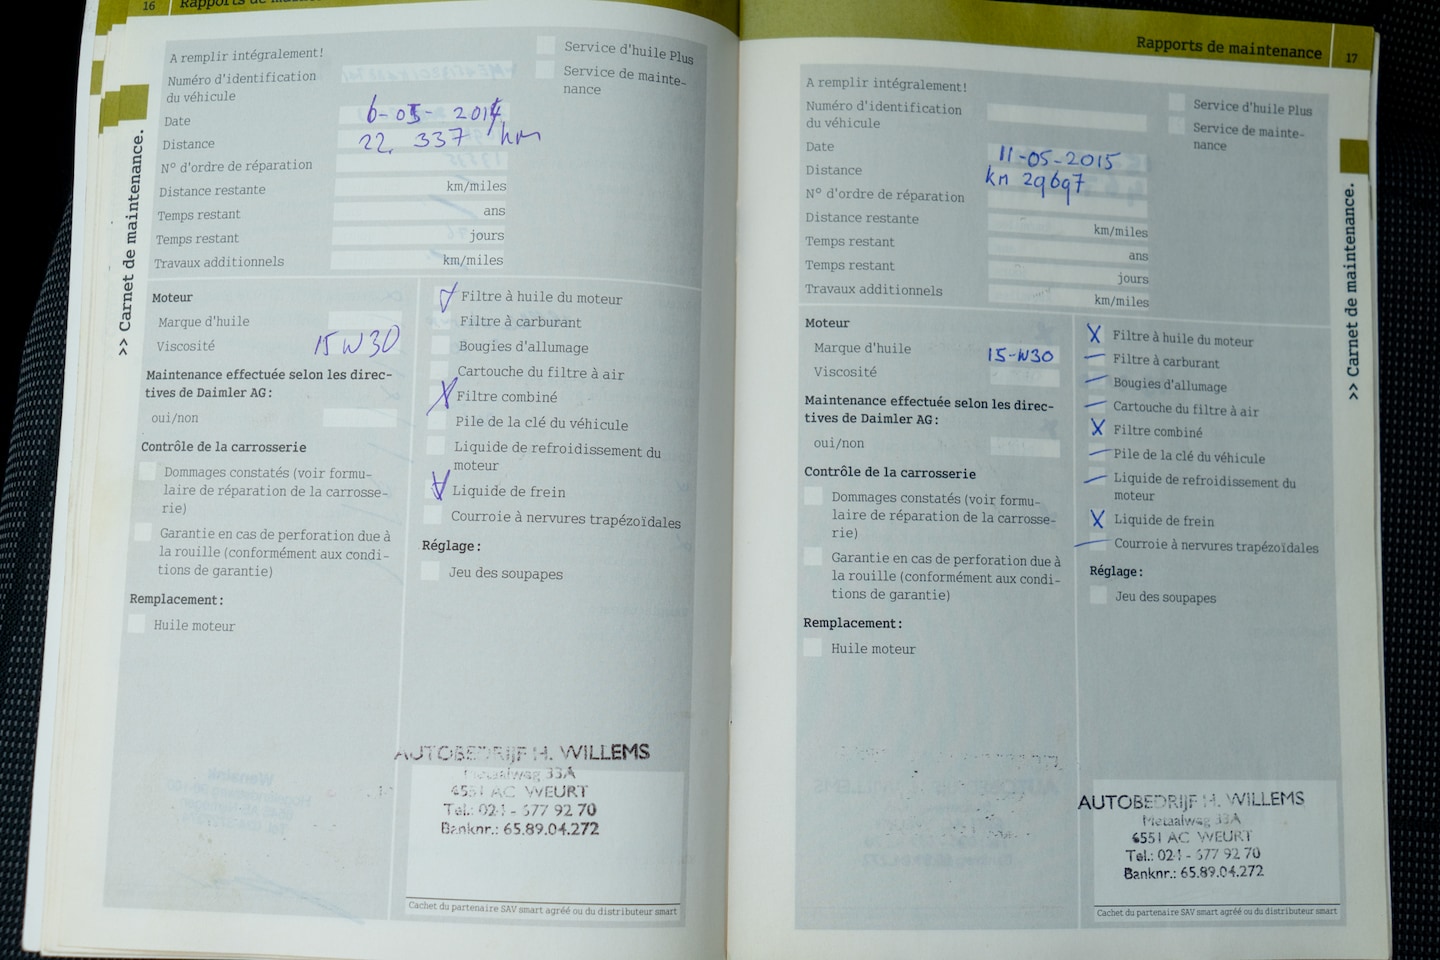 16
Rapports de
A remplir intégralement!
Service d'huile Plus
Numéro d'identification
du véhicule
Service de mainte-
nance
Date
6-05-2014
Distance
22.337 km
N° d'ordre de réparation
Distance restante
km/miles
Temps restant
ans
Temps restant
jours
Travaux additionnels
km/miles
>> Carnet de maintenance.
Moteur
Marque d'huile
Viscosité
15W30
Maintenance effectuée selon les direc-
tives de Daimler AG:
oui/non
Contrôle de la carrosserie
Dommages constatés (voir formu-
laire de réparation de la carrosse-
rie)
Garantie en cas de perforation due à
la rouille (conformément aux condi-
tions de garantie)
Remplacement:
Huile moteur
Filtre à huile du moteur
Filtre à carburant
Bougies d'allumage
Cartouche du filtre à air
X Filtre combiné
Pile de la clé du véhicule
Liquide de refroidissement du
moteur
Liquide de frein
Courroie à nervures trapézoïdales
Réglage:
Jeu des soupapes
AUTOBEDRIJF H. WILLEMS
Metaalweg 33A
6551 AC WEURT
Tel.: 024 - 677 92 70
Banknr.: 65.89.04.272
Cachet du partenaire SAV smart agréé ou du distributeur smart
Rapports de maintenance
17
A remplir intégralement!
Service d'huile Plus
Numéro d'identification
du véhicule
Service de mainte-
nance
Date
11-05-2015
Distance
km 29697
N° d'ordre de réparation
Distance restante
km/miles
Temps restant
ans
Temps restant
jours
Travaux additionnels
km/miles
>> Carnet de maintenance.
Moteur
Marque d'huile
15-W30
Viscosité
Maintenance effectuée selon les direc-
tives de Daimler AG:
oui/non
Contrôle de la carrosserie
Dommages constatés (voir formu-
laire de réparation de la carrosse-
rie)
Garantie en cas de perforation due à
la rouille (conformément aux condi-
tions de garantie)
Remplacement:
Huile moteur
X Filtre à huile du moteur
– Filtre à carburant
– Bougies d'allumage
– Cartouche du filtre à air
X Filtre combiné
– Pile de la clé du véhicule
– Liquide de refroidissement du
moteur
X Liquide de frein
– Courroie à nervures trapézoïdales
Réglage:
Jeu des soupapes
AUTOBEDRIJF H. WILLEMS
Metaalweg 33A
6551 AC WEURT
Tel.: 024 - 677 92 70
Banknr.: 65.89.04.272
Cachet du partenaire SAV smart agréé ou du distributeur smart